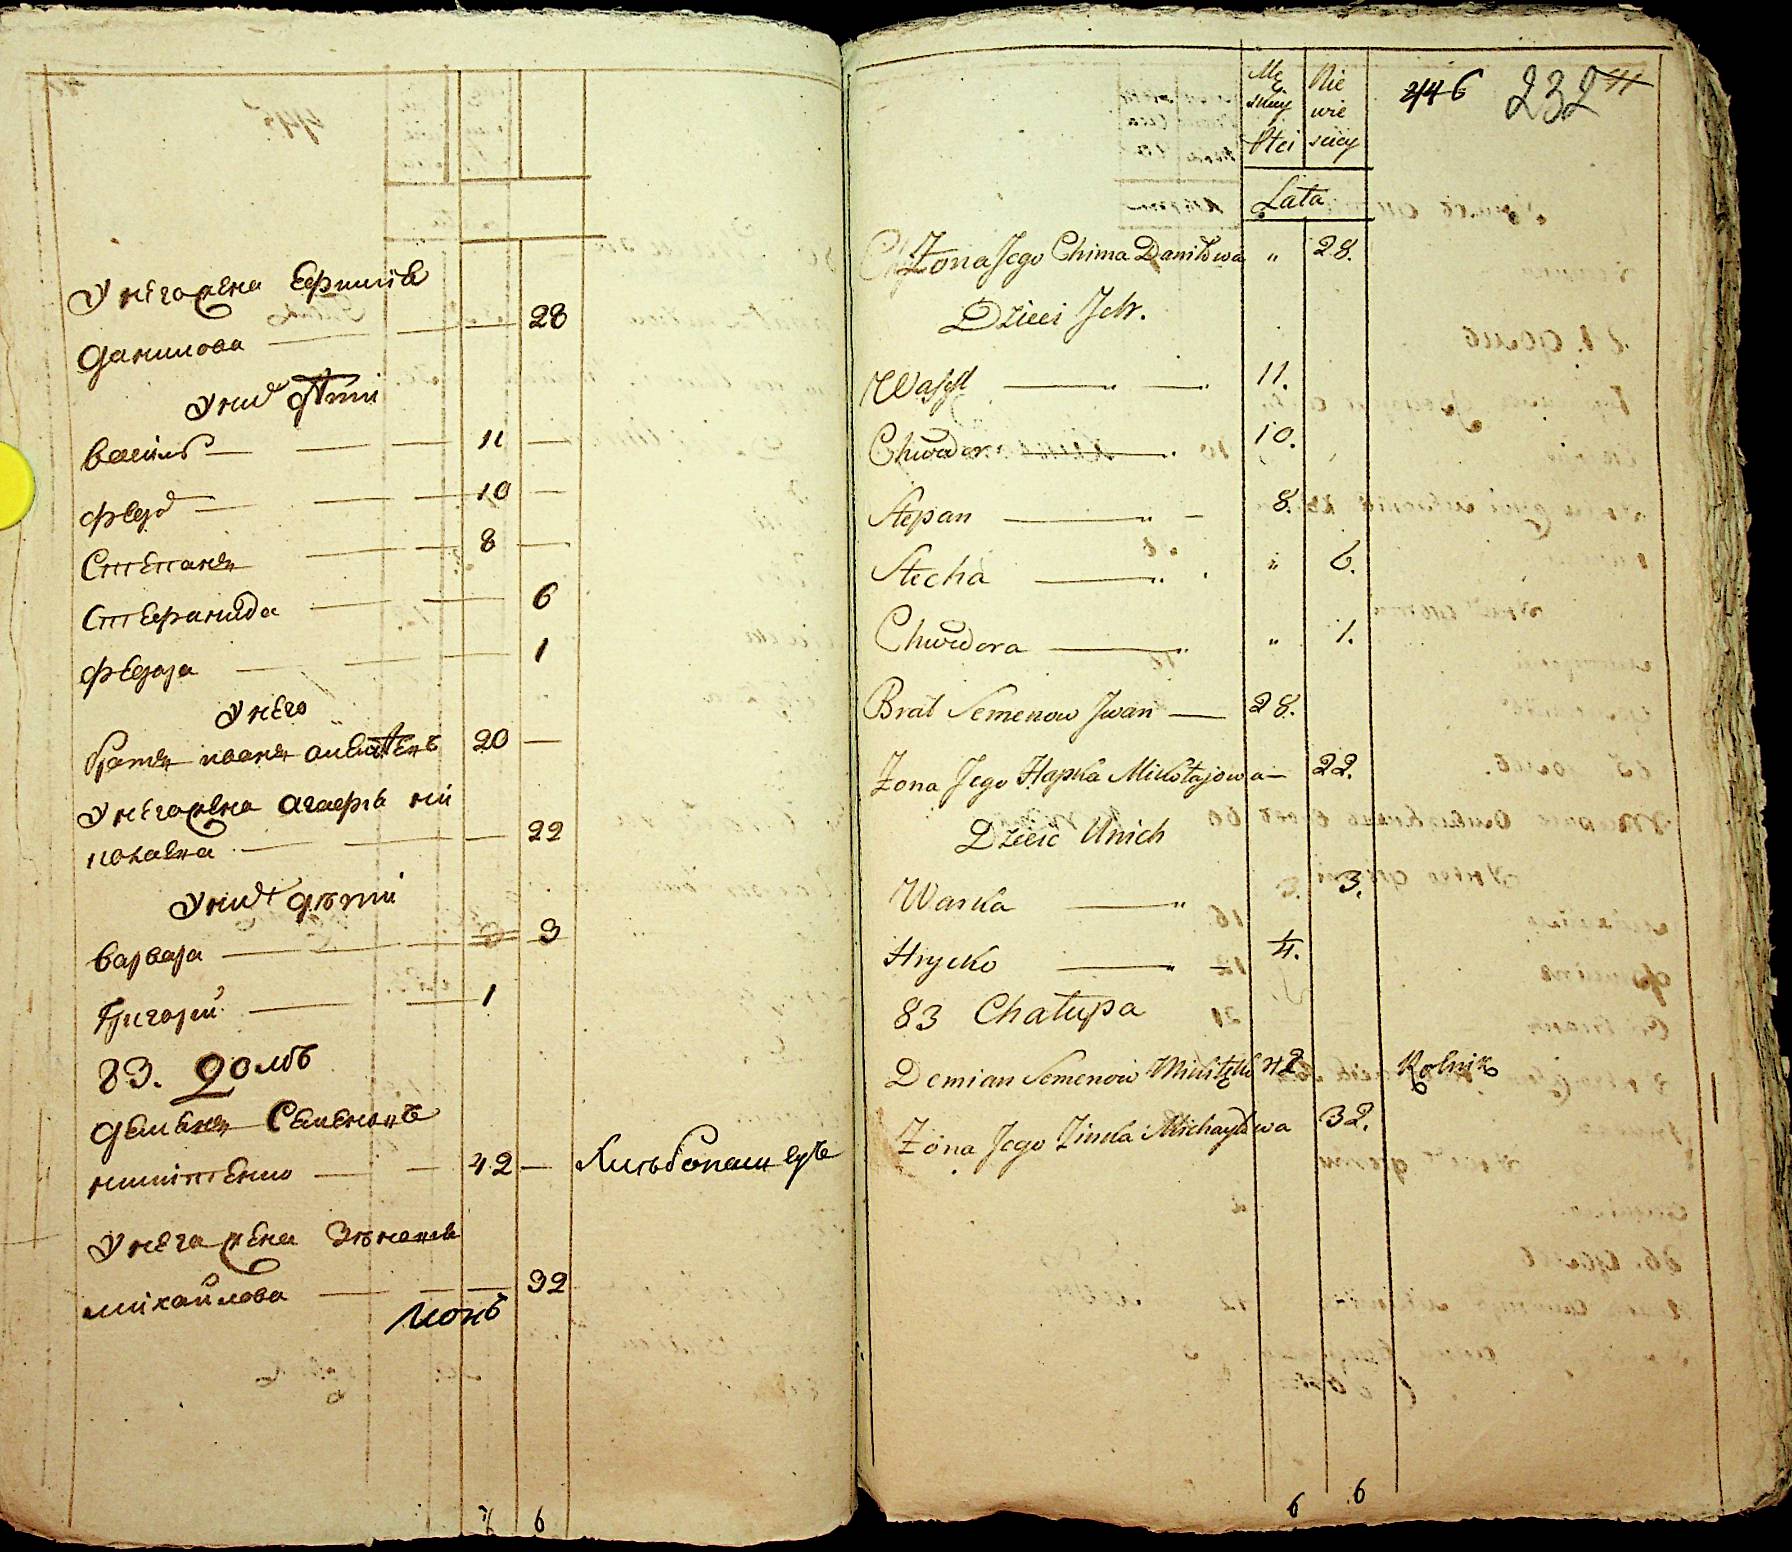 У него жена Ефимія
Данилова — 28
У них дѣти
Василь — 11 —
Федор — 10 —
Степанъ — 8 —
Степанида — 6
Федора — 1
У него
братъ иванъ 20 —
У него жена Агафія ни
колаева — 22
У них дѣти
варвара — 3
Григорій — 1
83. Домъ
Демьянъ Семеновъ
никитенко — 42 — Хлебопашецъ
У него жена Зѣновія
михайлова — 32
6
Mę Nie 246 232
skiey wie
Płci skiey
Lata
Żona Jego Chima Daniłowa " 28.
Dzieci Ich.
Wasyl — 11.
Chwedor — 10.
Stepan — 8.
Stecha — " 6.
Chwedora — " 1.
Brat Semenow Jwan — 28.
Żona Jego Hapka Mikołajowa — 22.
Dzieci Unich
Warka — 3.
Hrycko — 4.
83 Chałupa
Demian Semenow 42 Rolnik
Żona Jego Zinka Michayłowa 32.
6 6